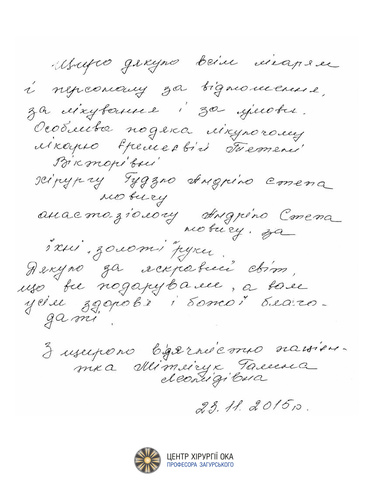 Щиро дякую всім лікарям
і персоналу за відношення,
за лікування і за умови.
Особлива подяка лікуючому
лікарю Єремеєвій Тетяні
Вікторівні
хірургу Гудзю Андрію Степа
новичу
анастазіологу Андрію Степа
новичу. за
їхні золоті руки.
Дякую за яскравий світ,
що ви подарували, а вам
усім здоров'я і божої благо-
даті.
З щирою вдячністю пацієн-
тка Галина
Леонідівна
23.11.2015р.
ЦЕНТР ХІРУРГІЇ ОКА
ПРОФЕСОРА ЗАГУРСЬКОГО